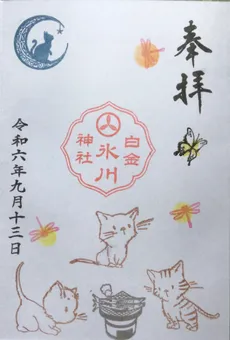 奉拝
白金
氷川
神社
令和六年九月十三日